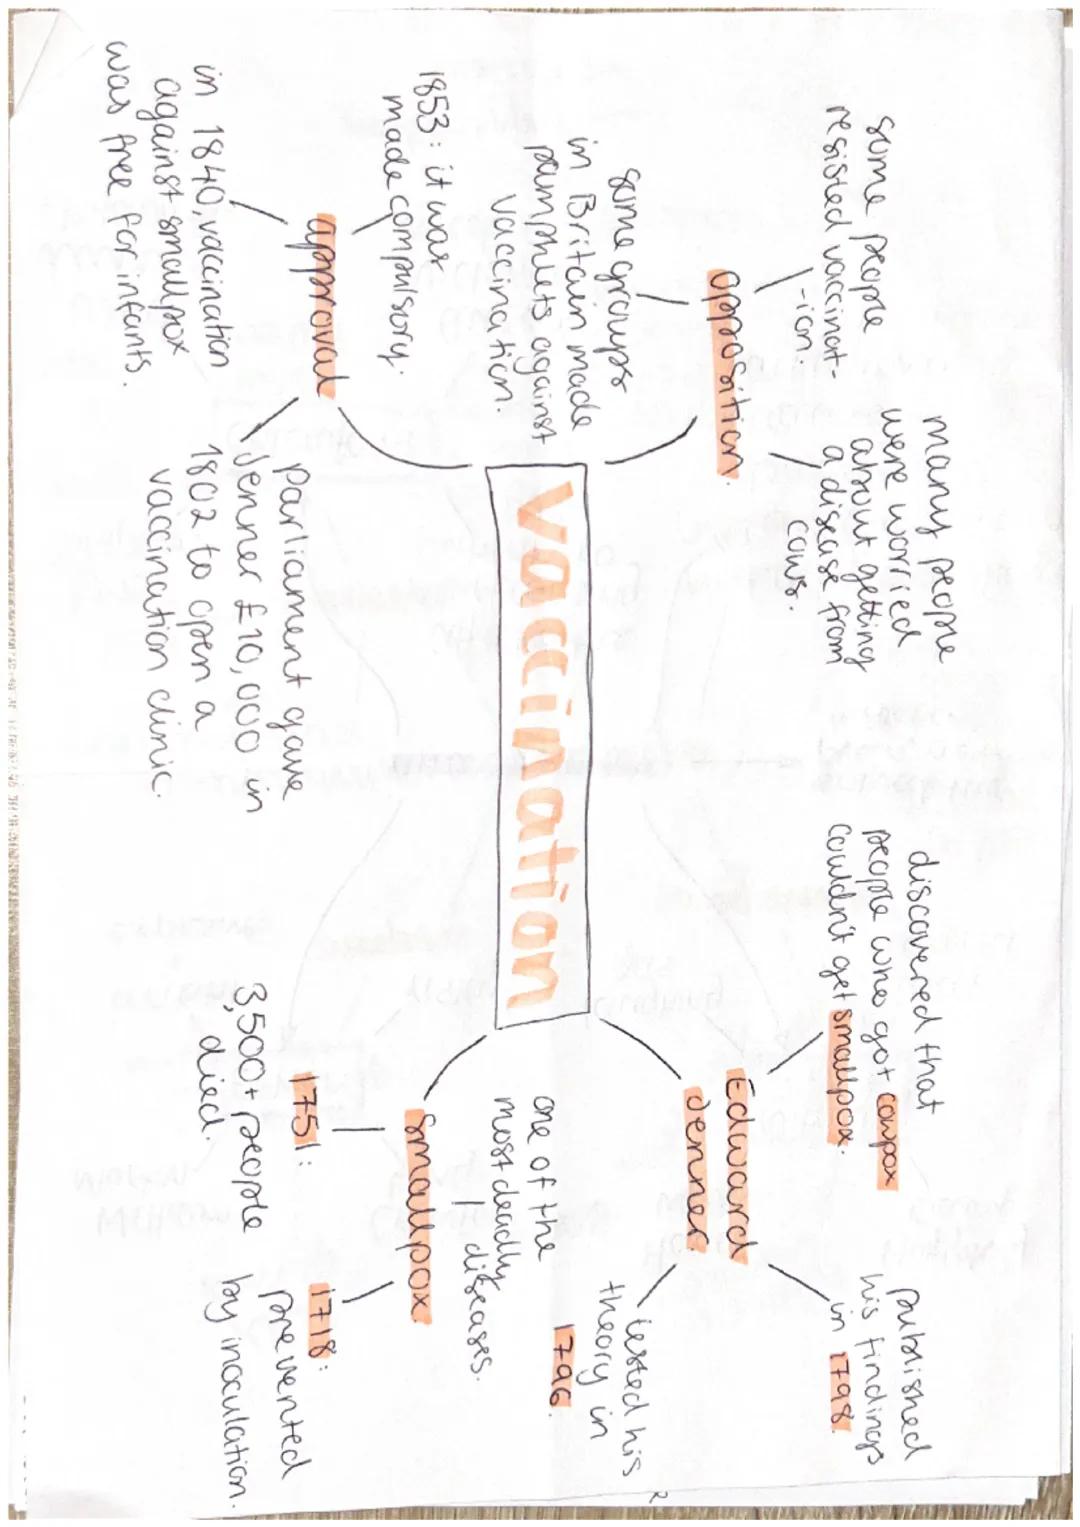 vaccination
opposition.
some people
resisted vaccinat-
-ion.
many people
were worried
about getting
a disease from
cows.
some groups
in Britain made
pamphlets against
vaccination.
Edward
Jenner.
discovered that
people who got cowpox
couldn't get smallpox.
published
his findings
in 1798.
tested his
theory in
1796.
approval
1853: it was
made compulsory.
in 1840 vaccination
against smallpox
was free for infants.
parliament gave
Jenner £10,000 in
1802 to open a
vaccination clinic.
smallpox.
one of the
most deadly
diseases.
1751:
3,500+ people
died.
1718:
prevented
by inoculation.